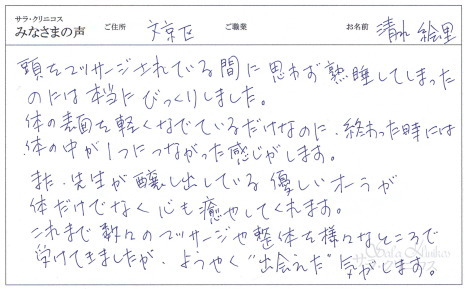 サラ・クリニコス
みなさまの声 ご住所 文京区 ご職業 お名前 清水 絵里
頭をマッサージされている間に思わず熟睡してしまった
のには本当にびっくりしました。
体の表面を軽くなでているだけなのに、終わった時には
体の中が1つにつながった感じがします。
また、先生が醸し出している優しいオーラが
体だけでなく心も癒やしてくれます。
これまで数々のマッサージや整体を様々なところで
受けてきましたが、ようやく"出会えた"気がします。